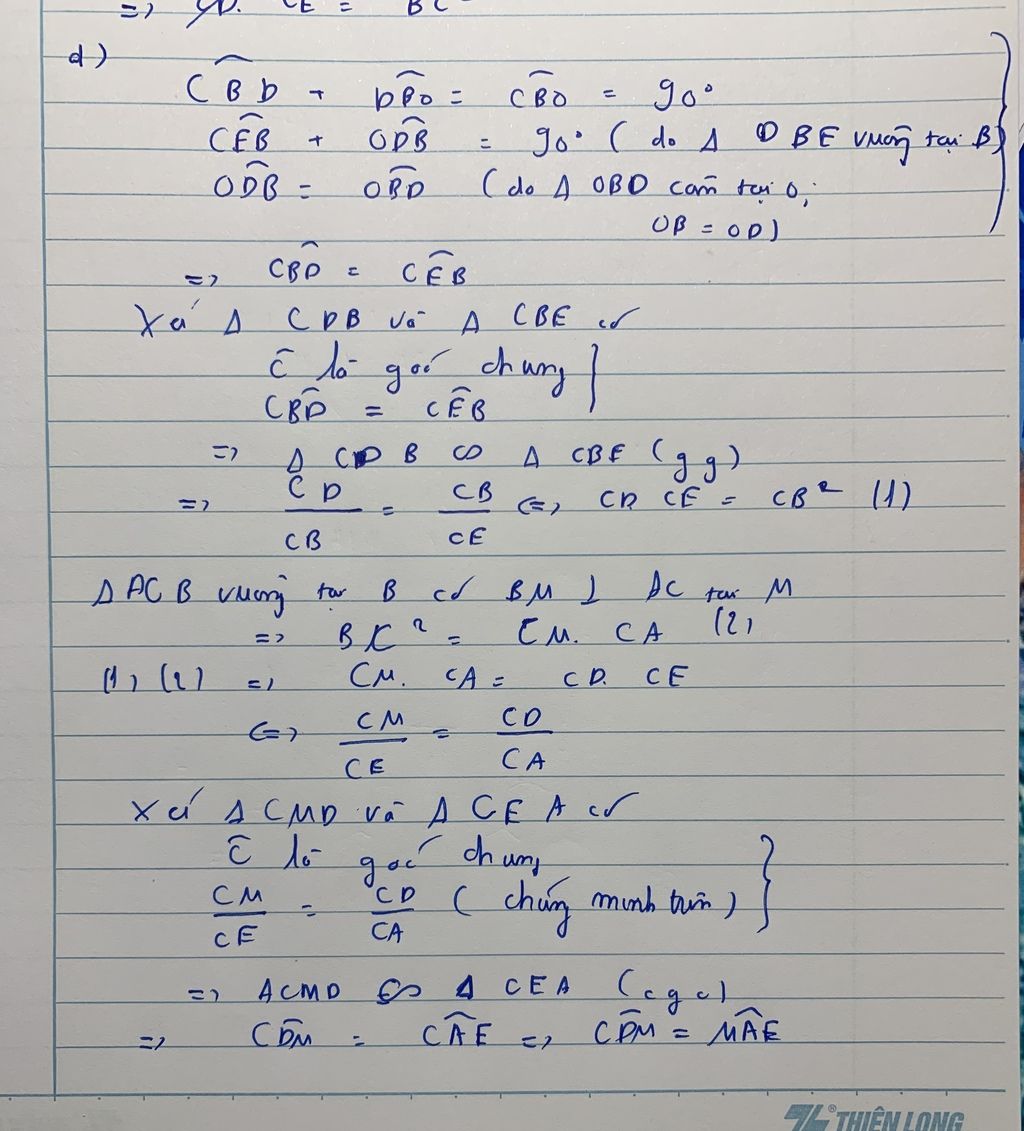 => CD. CE = BC
d)
CB̂D + DB̂O = CB̂O = 90°
CÊB + OD̂B = 90° (do Δ DBE vuông tại B)
OD̂B = OB̂D (do Δ OBD cân tại O;
OB = OD)
=> CB̂D = CÊB
Xét Δ CDB và Δ CBE có
Ĉ là góc chung
CB̂D = CÊB
=> Δ CDB ∽ Δ CBE (gg)
=> CD/CB = CB/CE <=> CD. CE = CB² (1)
Δ ACB vuông tại B có BM ⊥ AC tại M
=> BC² = CM. CA (2)
(1), (2) => CM. CA = CD. CE
<=> CM/CE = CD/CA
Xét Δ CMD và Δ CEA có
Ĉ là góc chung
CM/CE = CD/CA (chứng minh trên)
=> ΔCMD ∽ Δ CEA (cgc)
=> CD̂M = CÂE => CD̂M = MÂE
THIÊN LONG